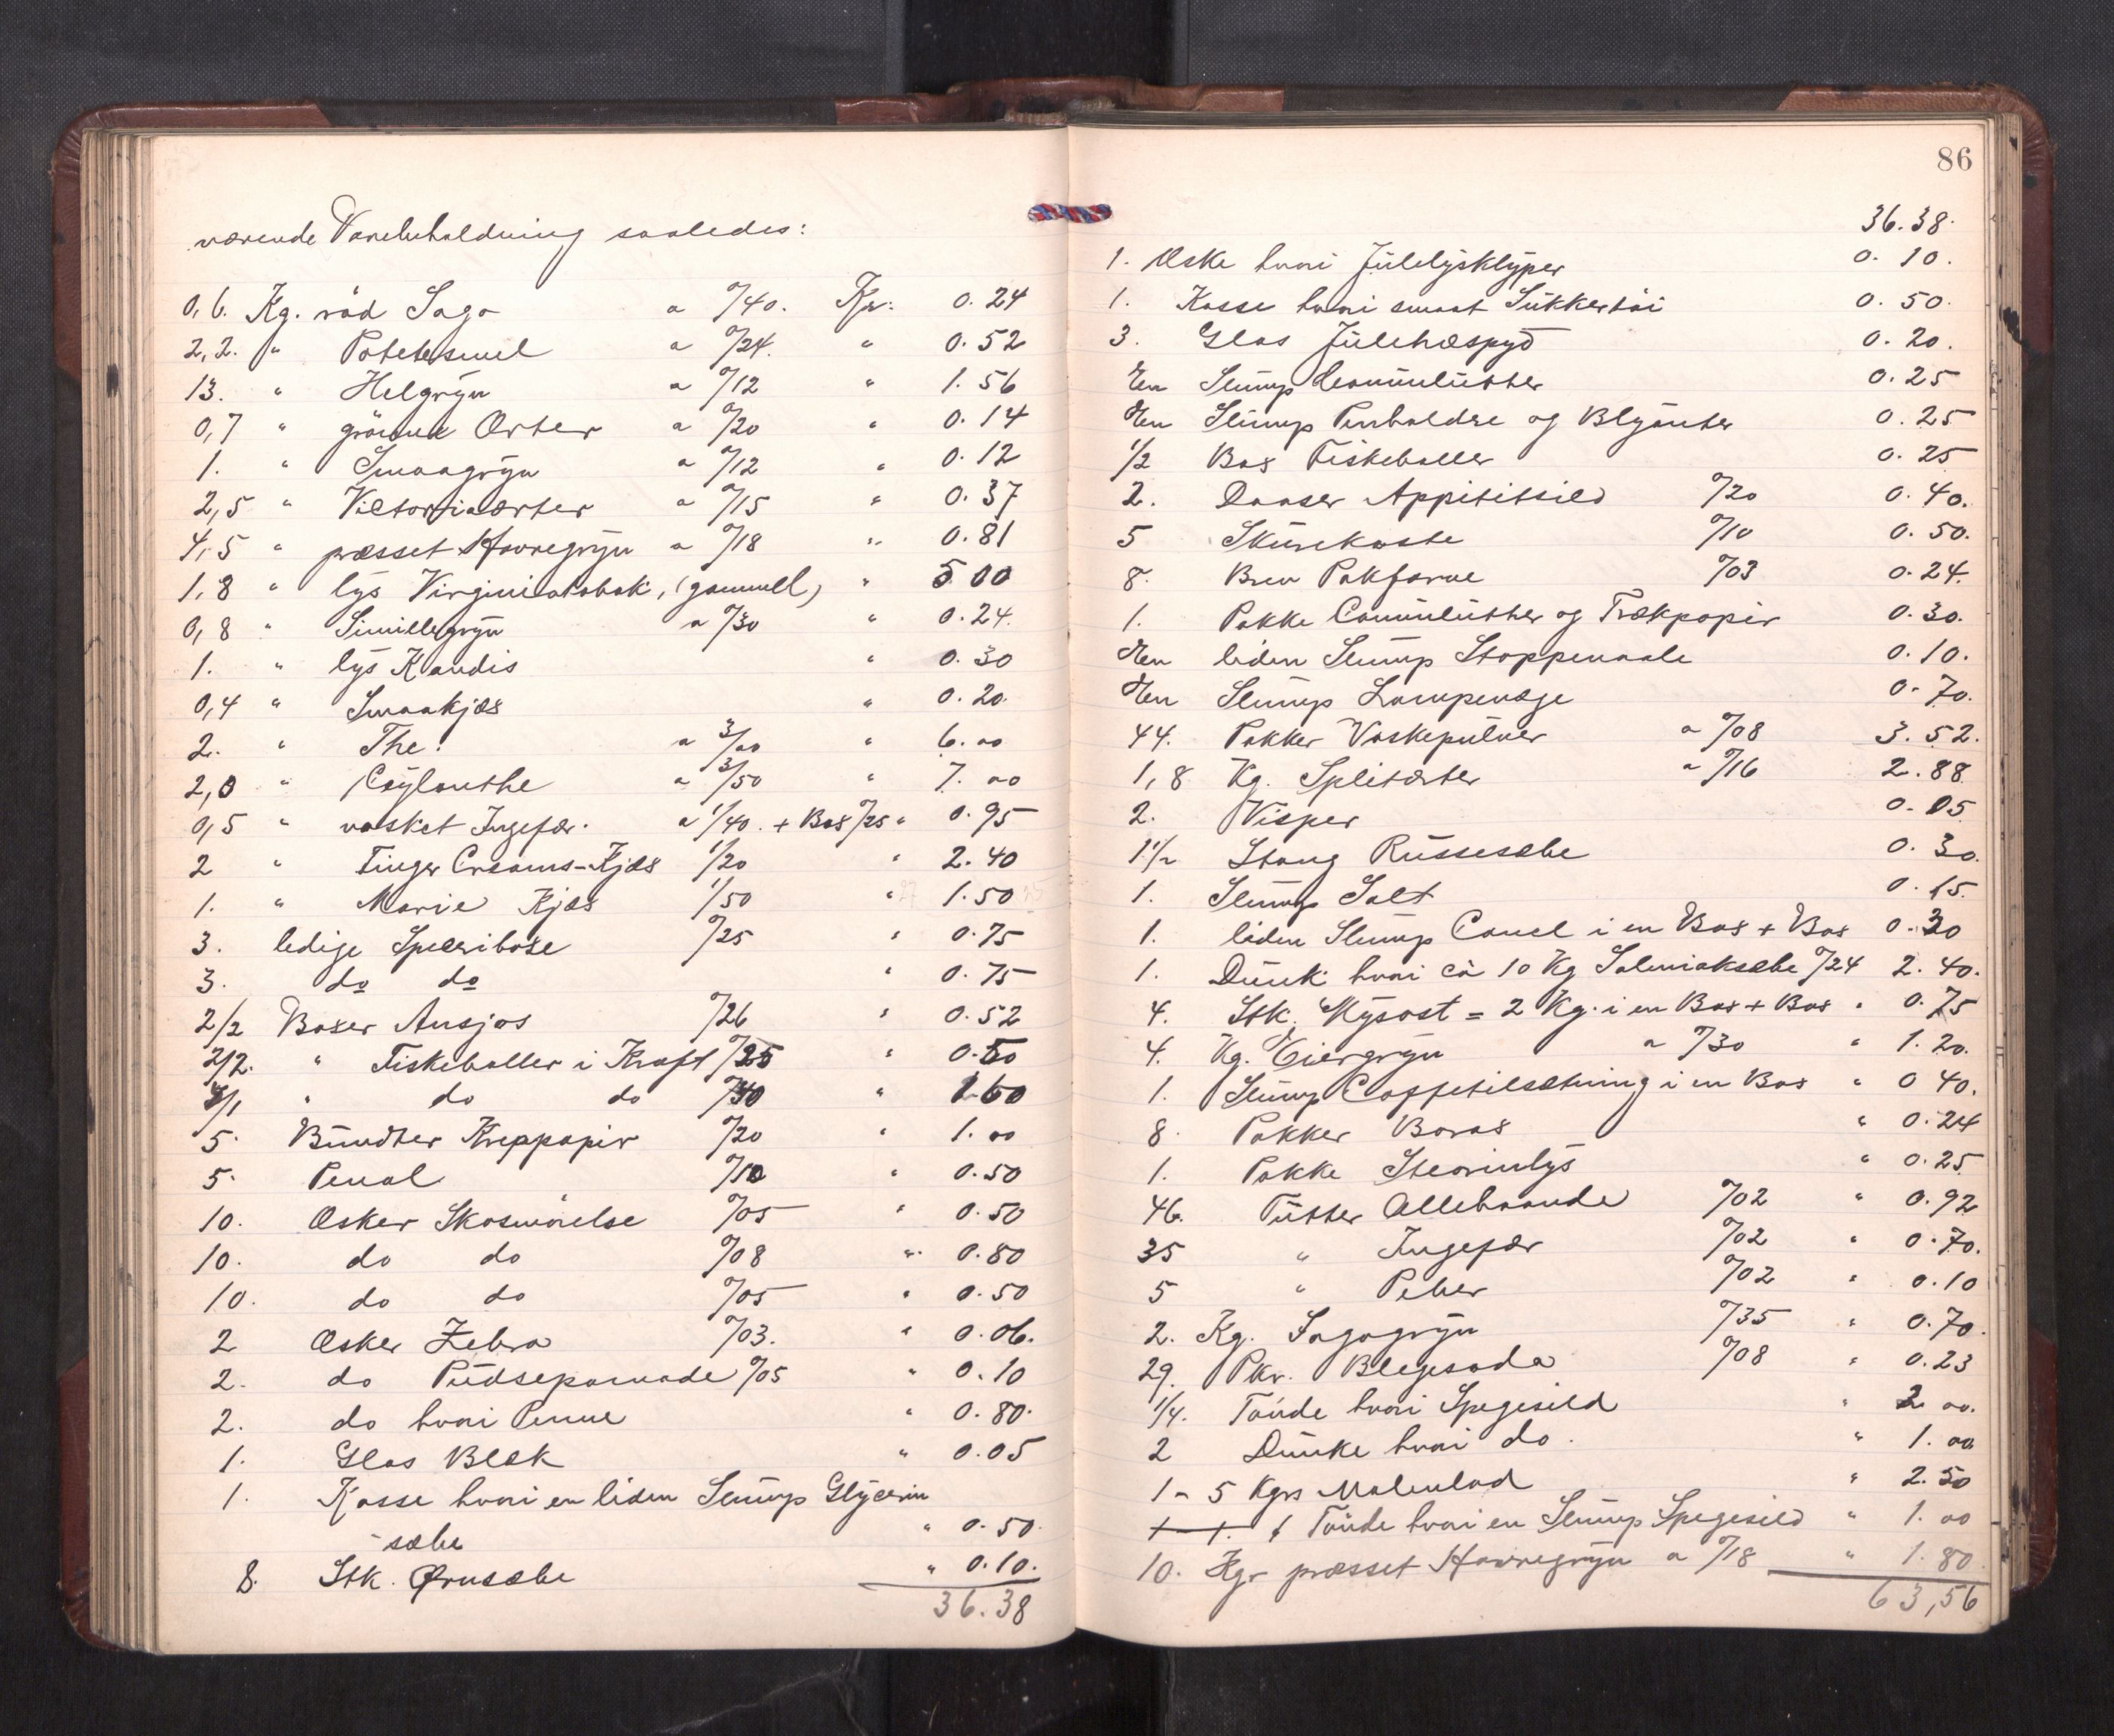 værende Varebeholdning saaledes:
0,6. Kg. röd Sago a 0/40. Kr: 0.24
2,2. " Potetesmel a 0/24. " 0.52
13. " Helgryn a 0/12 " 1.56
0,7 " grönne Erter a 0/20 " 0.14
1. " Smaagryn a 0/12 " 0.12
2,5 " Victoriaærter a 0/15 " 0.37
4,5 " præsset Havregryn a 0/18 " 0.81
1,8 " lys Virginiatobak, (gammel) " 5 00
0,8 " Simillegryn a 0/30 " 0.24.
1. " lys Kandis " 0.30
0,4 " Smaakjæs " 0.20.
2. " The. a 3/00 " 6.00
2,0 " Ceylonthe a 3/50 " 7.00
0,5 " vasket Ingefær. a 1/40. + Box 0/25 " 0.95
2 " Finger Creams-Kjæs 1/20 " 2.40
1. " Marie Kjæs 1/50 " 1.50
3. ledige Speceriboxe 0/25 " 0.75
3. do do " 0.75
2/2 Boxer Ansjos 0/26 " 0.52
2/2. " Fiskeboller i Kraft 0/25 " 0.50
4/1 " do do 0/40 " 1.60
5. Bundter Kreppapir 0/20 " 1.00
5. Penal 0/10 " 0.50
10. Æsker Skosmörelse 0/05 " 0.50
10. do do 0/08 " 0.80
10. do do 0/05 " 0.50
2 Æsker Zebra 0/03. " 0.06.
2. do Pudsepomade 0/05 " 0.10
2. do hvori Penne " 0.80.
1. Glas Blæk " 0.05
1. Kasse hvori en liden Slump Glycerin
-sæbe " 0.50.
8. Stk. Ørnsæbe " 0.10.
36.38
86
36.38.
1. Æske hvori Julelysklyper 0.10.
1. Kasse hvori smaat Sukkertöi 0.50.
3. Glas Juletræspyd 0.20.
En Slump Convolutter 0.25
En Slump Penholdre og Blyanter 0.25
1/2 Box Fiskeboller 0.25
2. Daaser Appititsild 0/20 0.40.
5 Skurekoste 0/10 0.50.
8. Brev Pakfarve 0/03 0.24.
1. Pakke Convolutter og Trækpapir 0.30.
En liden Slump Stoppenaale 0.10.
En Slump Lampevæge 0.70.
44. Pakker Vaskepulver a 0/08 3.52.
1,8 Kg. Splitærter a 0/16 2.88
2. Visper 0.05
1 1/2 Stang Russesæbe 0.30.
1. Slump Salt 0.15.
1. liden Slump Canel i en Box + Box 0.30
1. Dunk hvori ca 10 Kg Salmiaksæbe 0/24 2.40.
4. Stk. Mysost = 2 Kg. i en Box + Box " 0.75
4. Kg. Eiergryn a 0/30 " 1.20.
1. Slump Caffetilsætning i en Box " 0 40.
8. Pakker Borax " 0.24
1. Pakke Stearinlys " 0.25
46. Tutter Allehaande 0/02 " 0.92
35 " Ingefær 0/02 " 0.70.
5 " Peber 0/02 " 0.10
2. Kg. Sagogryn 0/35 " 0.70.
29. Pkr. Blegesoda 0/08 " 0.23
1/4. Tönde hvori Spegesild " 2 00.
2 Dunke hvori do. " 1.00
1 - 5 Kgrs Malerlod " 2.50
Tönde hvori en Slump Spegesild " 1.00
10. Kgr præsset Havregryn a 0/18 " 1.80.
63,56